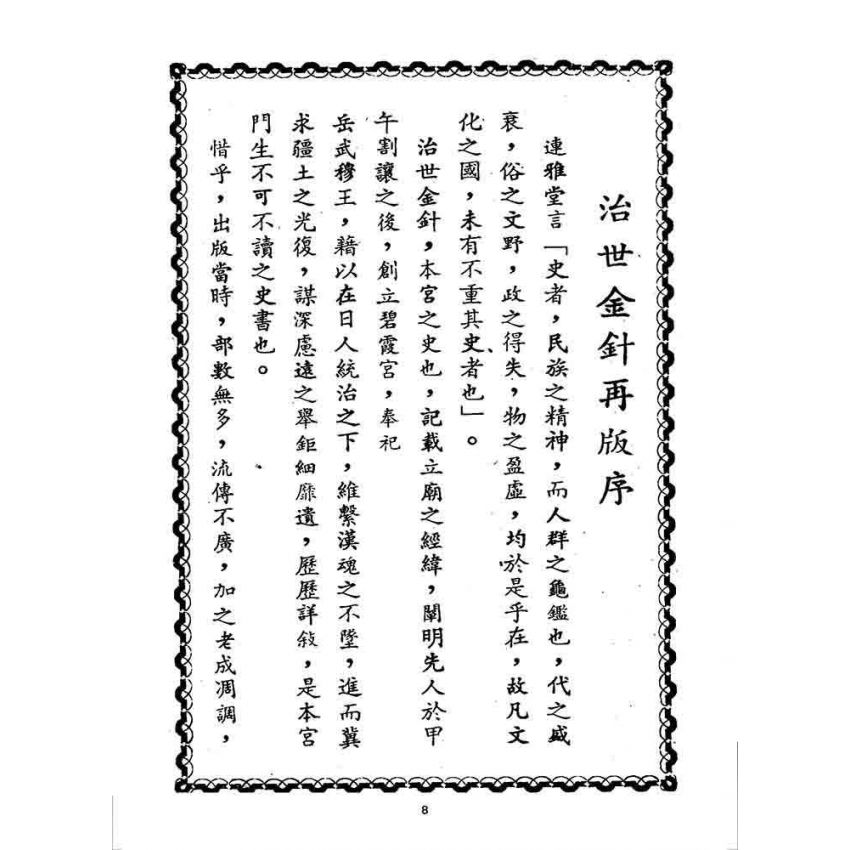 治世金針再版序
連雅堂言「史者，民族之精神，而人群之龜鑑也，代之盛
衰，俗之文野，政之得失，物之盈虛，均於是乎在，故凡文
化之國，未有不重其史者也」。
治世金針，本宮之史也，記載立廟之經緯，闡明先人於甲
午割讓之後，創立碧霞宮，奉祀
岳武穆王，藉以在日人統治之下，維繫漢魂之不墜，進而冀
求疆土之光復，謀深慮遠之舉鉅細靡遺，歷歷詳敘，是本宮
門生不可不讀之史書也。
惜乎，出版當時，部數無多，流傳不廣，加之老成凋調，
8